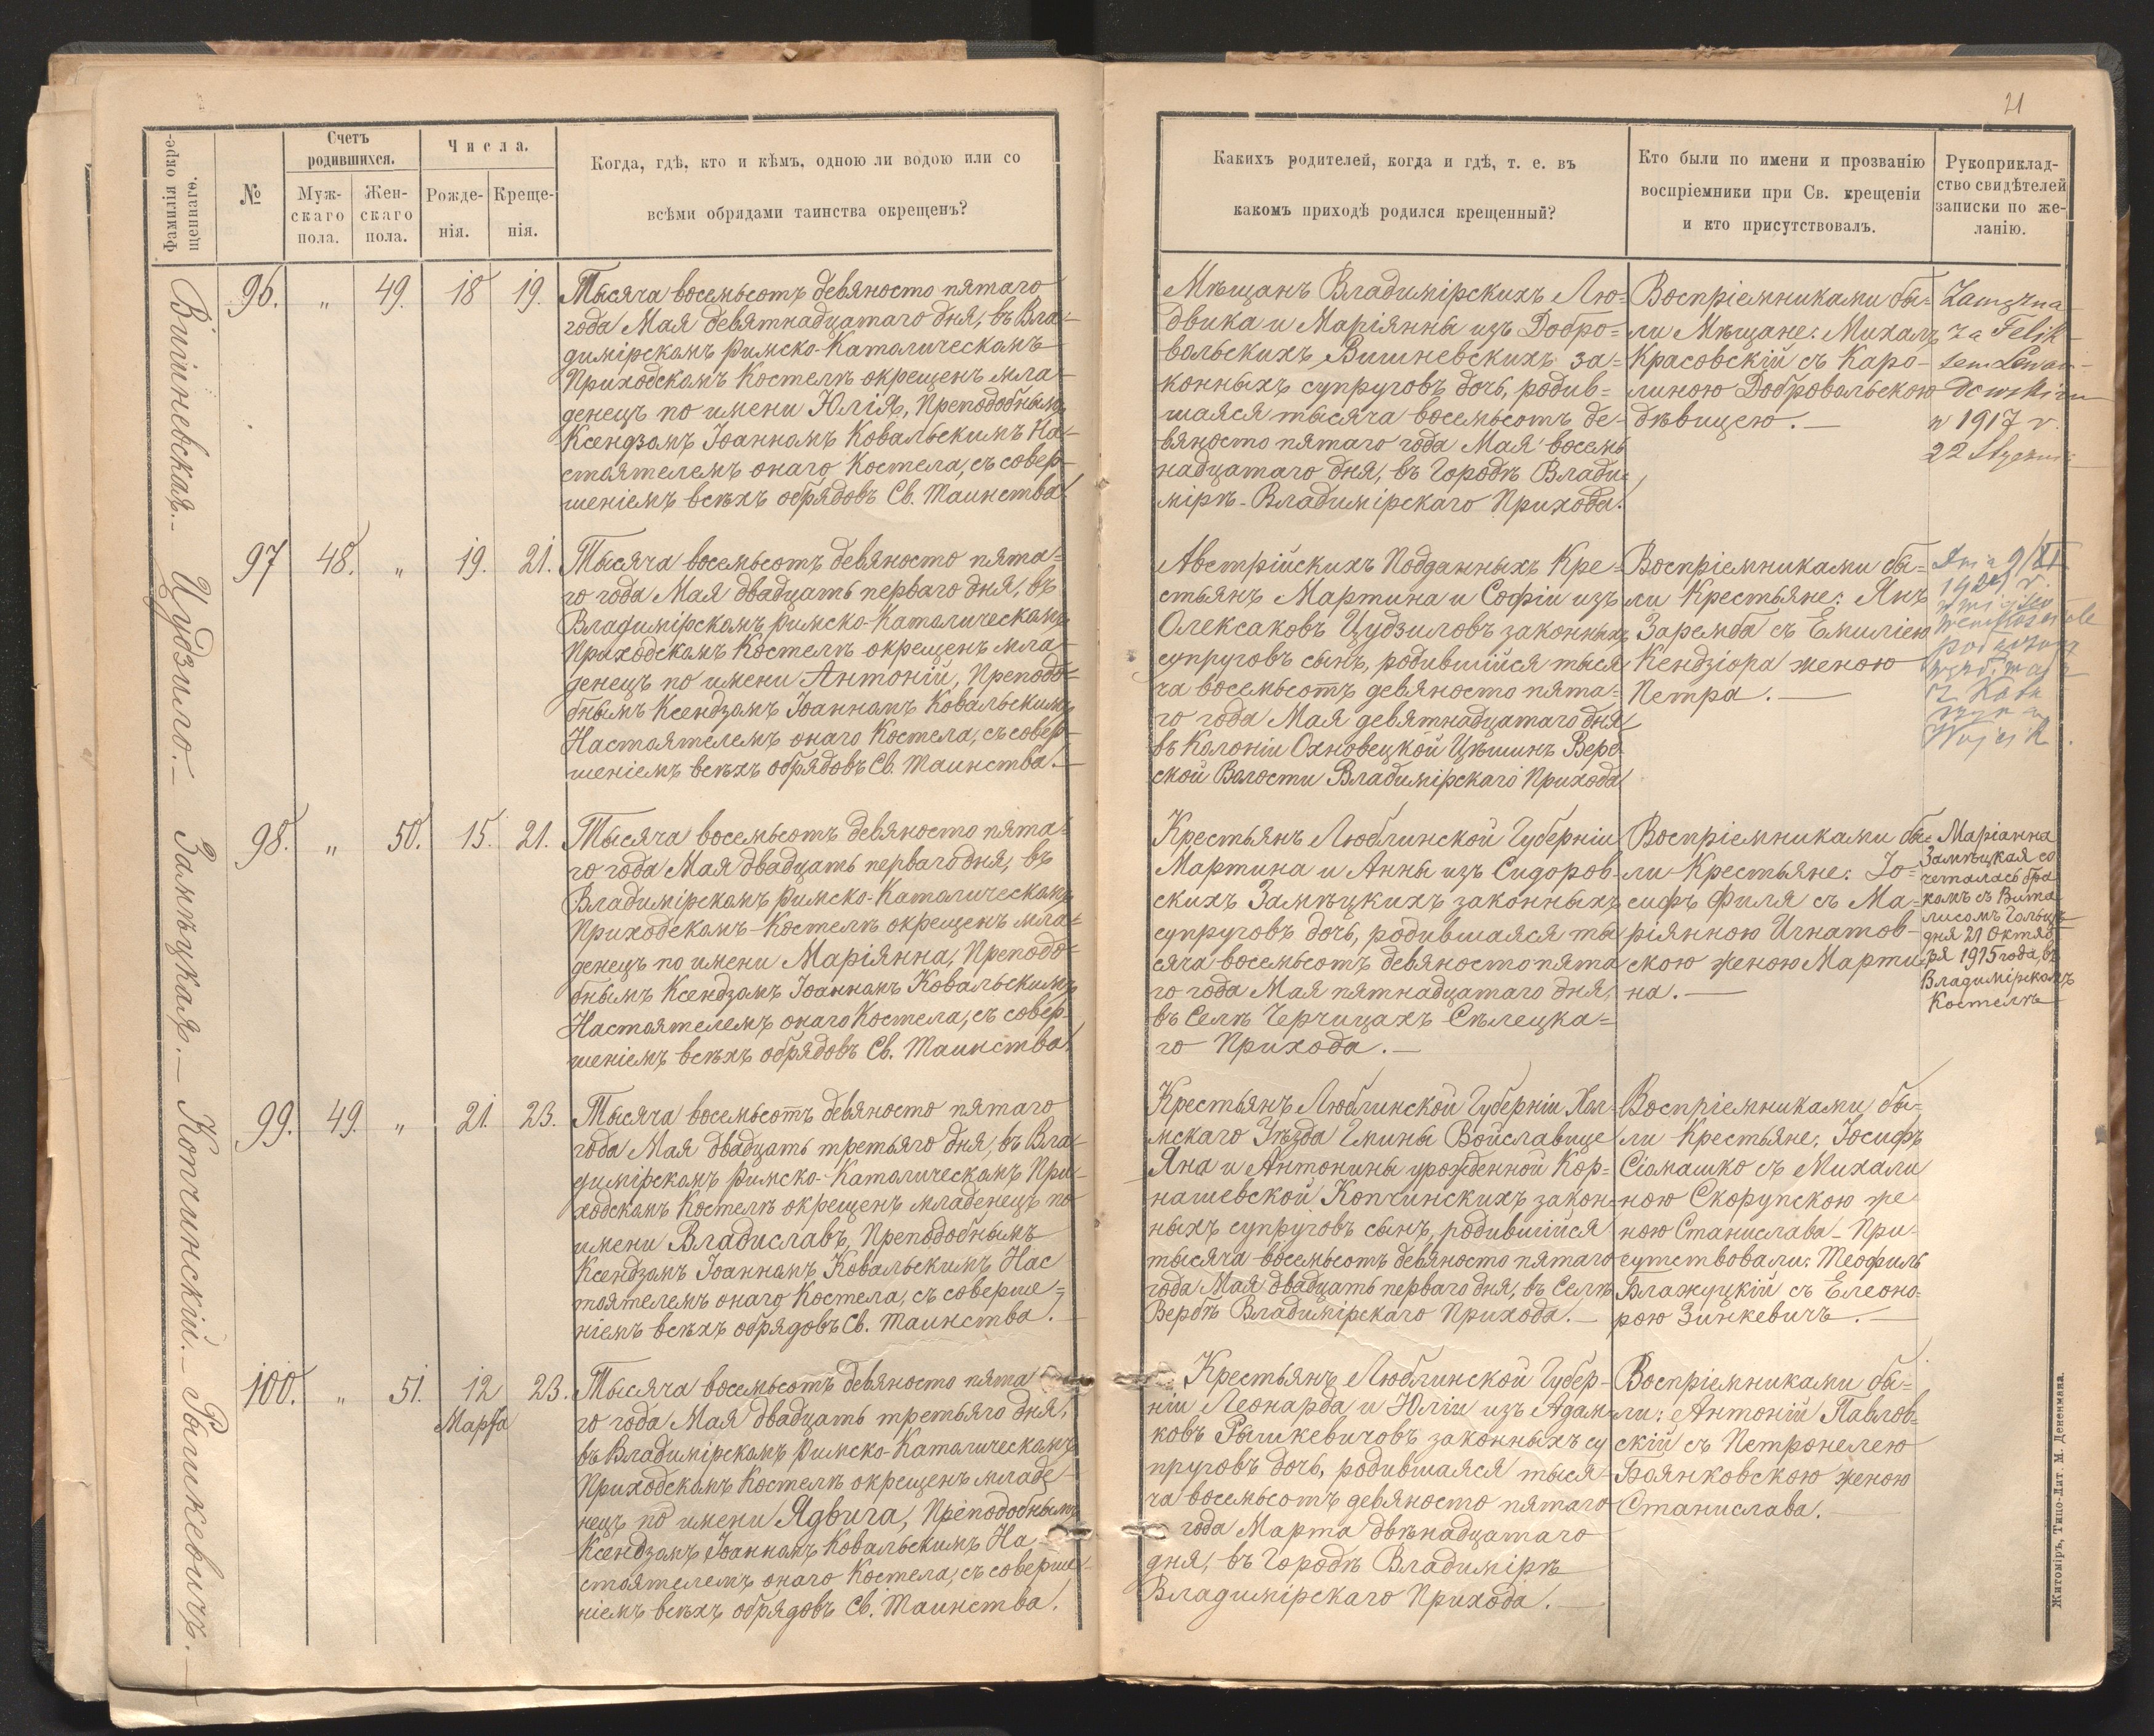 21
Фамилія окре-
щеннаго.
№
Счетъ
родившихся.
Муж-
скаго
пола.
Жен-
скаго
пола.
Числа.
Рожде-
нія.
Креще-
нія.
Когда, гдѣ, кто и кѣмъ, одною ли водою или со
всѣми обрядами таинства окрещенъ?
Какихъ родителей, когда и гдѣ, т. е. въ
какомъ приходѣ родился крещенный?
Кто были по имени и прозванію
воспріемники при Св. крещеніи
и кто присутствовалъ.
Рукоприклад-
ство свидѣтелей
записки по же-
ланію.
Вишневская.
96. " 49. 18 19.
Тысяча восемьсотъ девяносто пятаго
года Мая девятнадцатаго дня, въ Вла-
димірскомъ Римско-Католическомъ
Приходскомъ Костелѣ окрещенъ мла-
денецъ по имени Юлія, Преподобнымъ
Ксендзомъ Іоанномъ Ковальскимъ На-
стоятелемъ онаго Костела, съ совер-
шеніемъ всѣхъ обрядовъ Св. Таинства.
Мѣщанъ Владимірскихъ Лю-
двика и Маріянны изъ Добро-
вольскихъ Вишневскихъ за-
конныхъ супруговъ дочь, родив=
шаяся тысяча восемьсотъ де-
вяносто пятаго года Мая восем-
надцатаго дня, въ Городѣ Влади-
мірѣ-Владимірскаго Прихода.
Воспріемниками бы=
ли Мѣщане: Михалъ
Красовскій съ Каро-
линою Добровольскою
дѣвицею.
Zamężna
za Felik
sem Lewan-
dowskim
w 1917 r.
22 Stycznia
Цудзило.
97 48. " 19. 21.
Тысяча восемьсотъ девяносто пята=
го года Мая двадцать перваго дня, въ
Владимірскомъ Римско-Католическомъ
Приходскомъ Костелѣ окрещенъ мла-
денецъ по имени Антоній, Преподо=
бнымъ Ксендзомъ Іоанномъ Ковальскимъ
Настоятелемъ онаго Костела, съ совер-
шеніемъ всѣхъ обрядовъ Св. Таинства.
Австрійскихъ Подданныхъ Кре-
стьянъ Мартина и Софіи изъ
Олексаковъ Цудзиловъ законныхъ
супруговъ сынъ, родившійся тыся
ча восемьсотъ девяносто пята=
го года Мая девятнадцатаго дня
въ Колоніи Охновецкой Цѣшинъ Верб
ской Волости Владимірскаго Прихода
Воспріемниками бы=
ли Крестьяне: Янъ
Заремба съ Емиліею
Кендзіора женою
Петра.
Dnia 9/XI
z Kata
Wojcik
Замѣцкая.
98. " 50. 15. 21.
Тысяча восемьсотъ девяносто пята-
го года Мая двадцать перваго дня, въ
Владимірскомъ Римско-Католическомъ
Приходскомъ Костелѣ окрещенъ мла-
денецъ по имени Маріянна, Преподо=
бнымъ Ксендзомъ Іоанномъ Ковальскимъ
Настоятелемъ онаго Костела, съ совер-
шеніемъ всѣхъ обрядовъ Св. Таинства.
Крестьянъ Люблинской Губерніи
Мартина и Анны изъ Сидоров-
скихъ Замѣцкихъ законныхъ
супруговъ дочь, родившаяся ты
сяча восемьсотъ девяносто пята
го года Мая пятнадцатаго дня,
въ Селѣ Черчицахъ Сѣлецка=
го Прихода.
Воспріемниками бы=
ли Крестьяне: Іо=
сифъ Филя съ Ма-
ріянною Игнатов-
скою женою Марти
на.
Маріанна
Замѣцкая со
четалась бра
комъ съ Вита
лисомъ Гольцъ
дня 21 Октяб
ря 1915 года, въ
Владимірскомъ
Костелѣ
Копчинскій.
99. 49. " 21. 23.
Тысяча восемьсотъ девяносто пятаго
года Мая двадцать третьяго дня, въ Вла-
димірскомъ Римско-Католическомъ При-
ходскомъ Костелѣ окрещенъ младенецъ по
имени Владиславъ, Преподобнымъ
Ксендзомъ Іоанномъ Ковальскимъ Нас
тоятелемъ онаго Костела, съ соверше=
ніемъ всѣхъ обрядовъ Св. Таинства.
Крестьянъ Люблинской Губерніи Хол-
мскаго Уѣзда Гмины Войславице
Яна и Антонины урожденной Кор=
нашевской Копчинскихъ закон-
ныхъ супруговъ сынъ, родившійся
тысяча восемьсотъ девяносто пятаго
года Мая двадцать перваго дня, въ Селѣ
Вербѣ Владимірскаго Прихода.
Воспріемниками бы-
ли Крестьяне, Іосифъ
Сіомашко съ Михали
ною Скорупскою же
ною Станислава - При-
сутствовали: Теофиль
Блажуцкій съ Елеоно-
рою Зинкевичъ.
Рышкевичъ.
100. " 51. 12 Марта 23.
Тысяча восемьсотъ девяносто пята-
го года Мая двадцать третьяго дня,
въ Владимірскомъ Римско-Католическомъ
Приходскомъ Костелѣ окрещенъ младе-
нецъ по имени Ядвига, Преподобнымъ
Ксендзомъ Іоанномъ Ковальскимъ На-
стоятелемъ онаго Костела, съ соверше-
ніемъ всѣхъ обрядовъ Св. Таинства.
Крестьянъ Люблинской Губер-
ніи Леонарда и Юліи изъ Адам-
ковъ Рышкевичовъ законныхъ су
пруговъ дочь, родившаяся тыся-
ча восемьсотъ девяносто пятаго
года Марта двѣнадцатаго
дня, въ Городѣ Владимірѣ
Владимірскаго Прихода.
Воспріемниками бы=
ли: Антоній Павлов-
скій съ Петронелею
Боянковскою женою
Станислава.
Житоміръ, Типо-Лит. М. Дененмана.